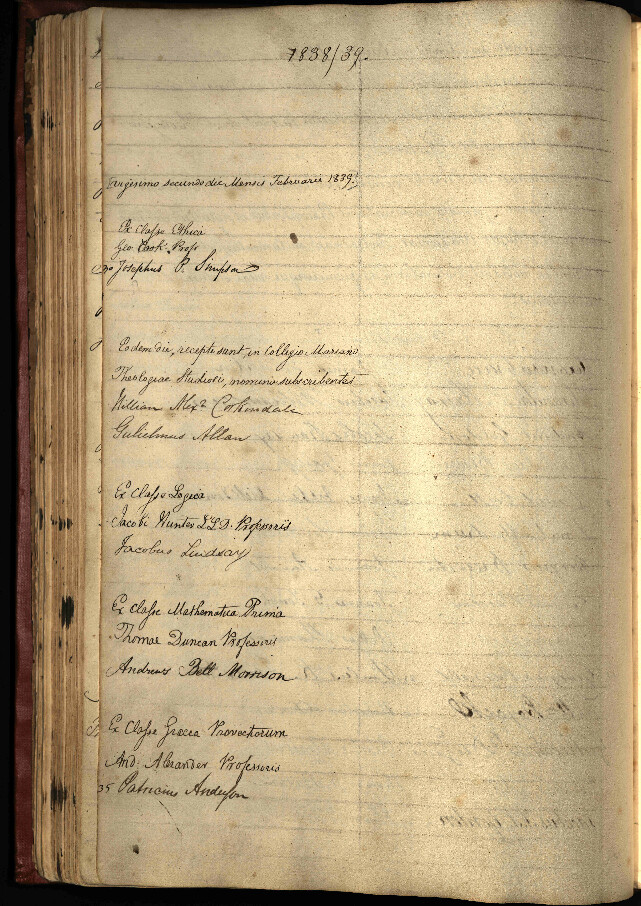 1838/39.
Vingesimo secundo die Mensis Februarii 1839.
Ex Classe Ethica
Geo. Cook. Profr
30 Josephus P. Simpson
Eodem die, recepti sunt, in Collegio Mariano
Theologiae Studiosi, nomina subscribentes
William Alexr
Gulielmus Allan
Ex Classe Logica
Jacobi Hunter LLD. Professoris
Jacobus Lindsay
Ex Classe Mathematica Prima
Thomae Duncan Professoris
Andrews Bell Morrison
Ex Classe Graeca Provectorum
And: Alexander Professoris
35 Patricius Anderson